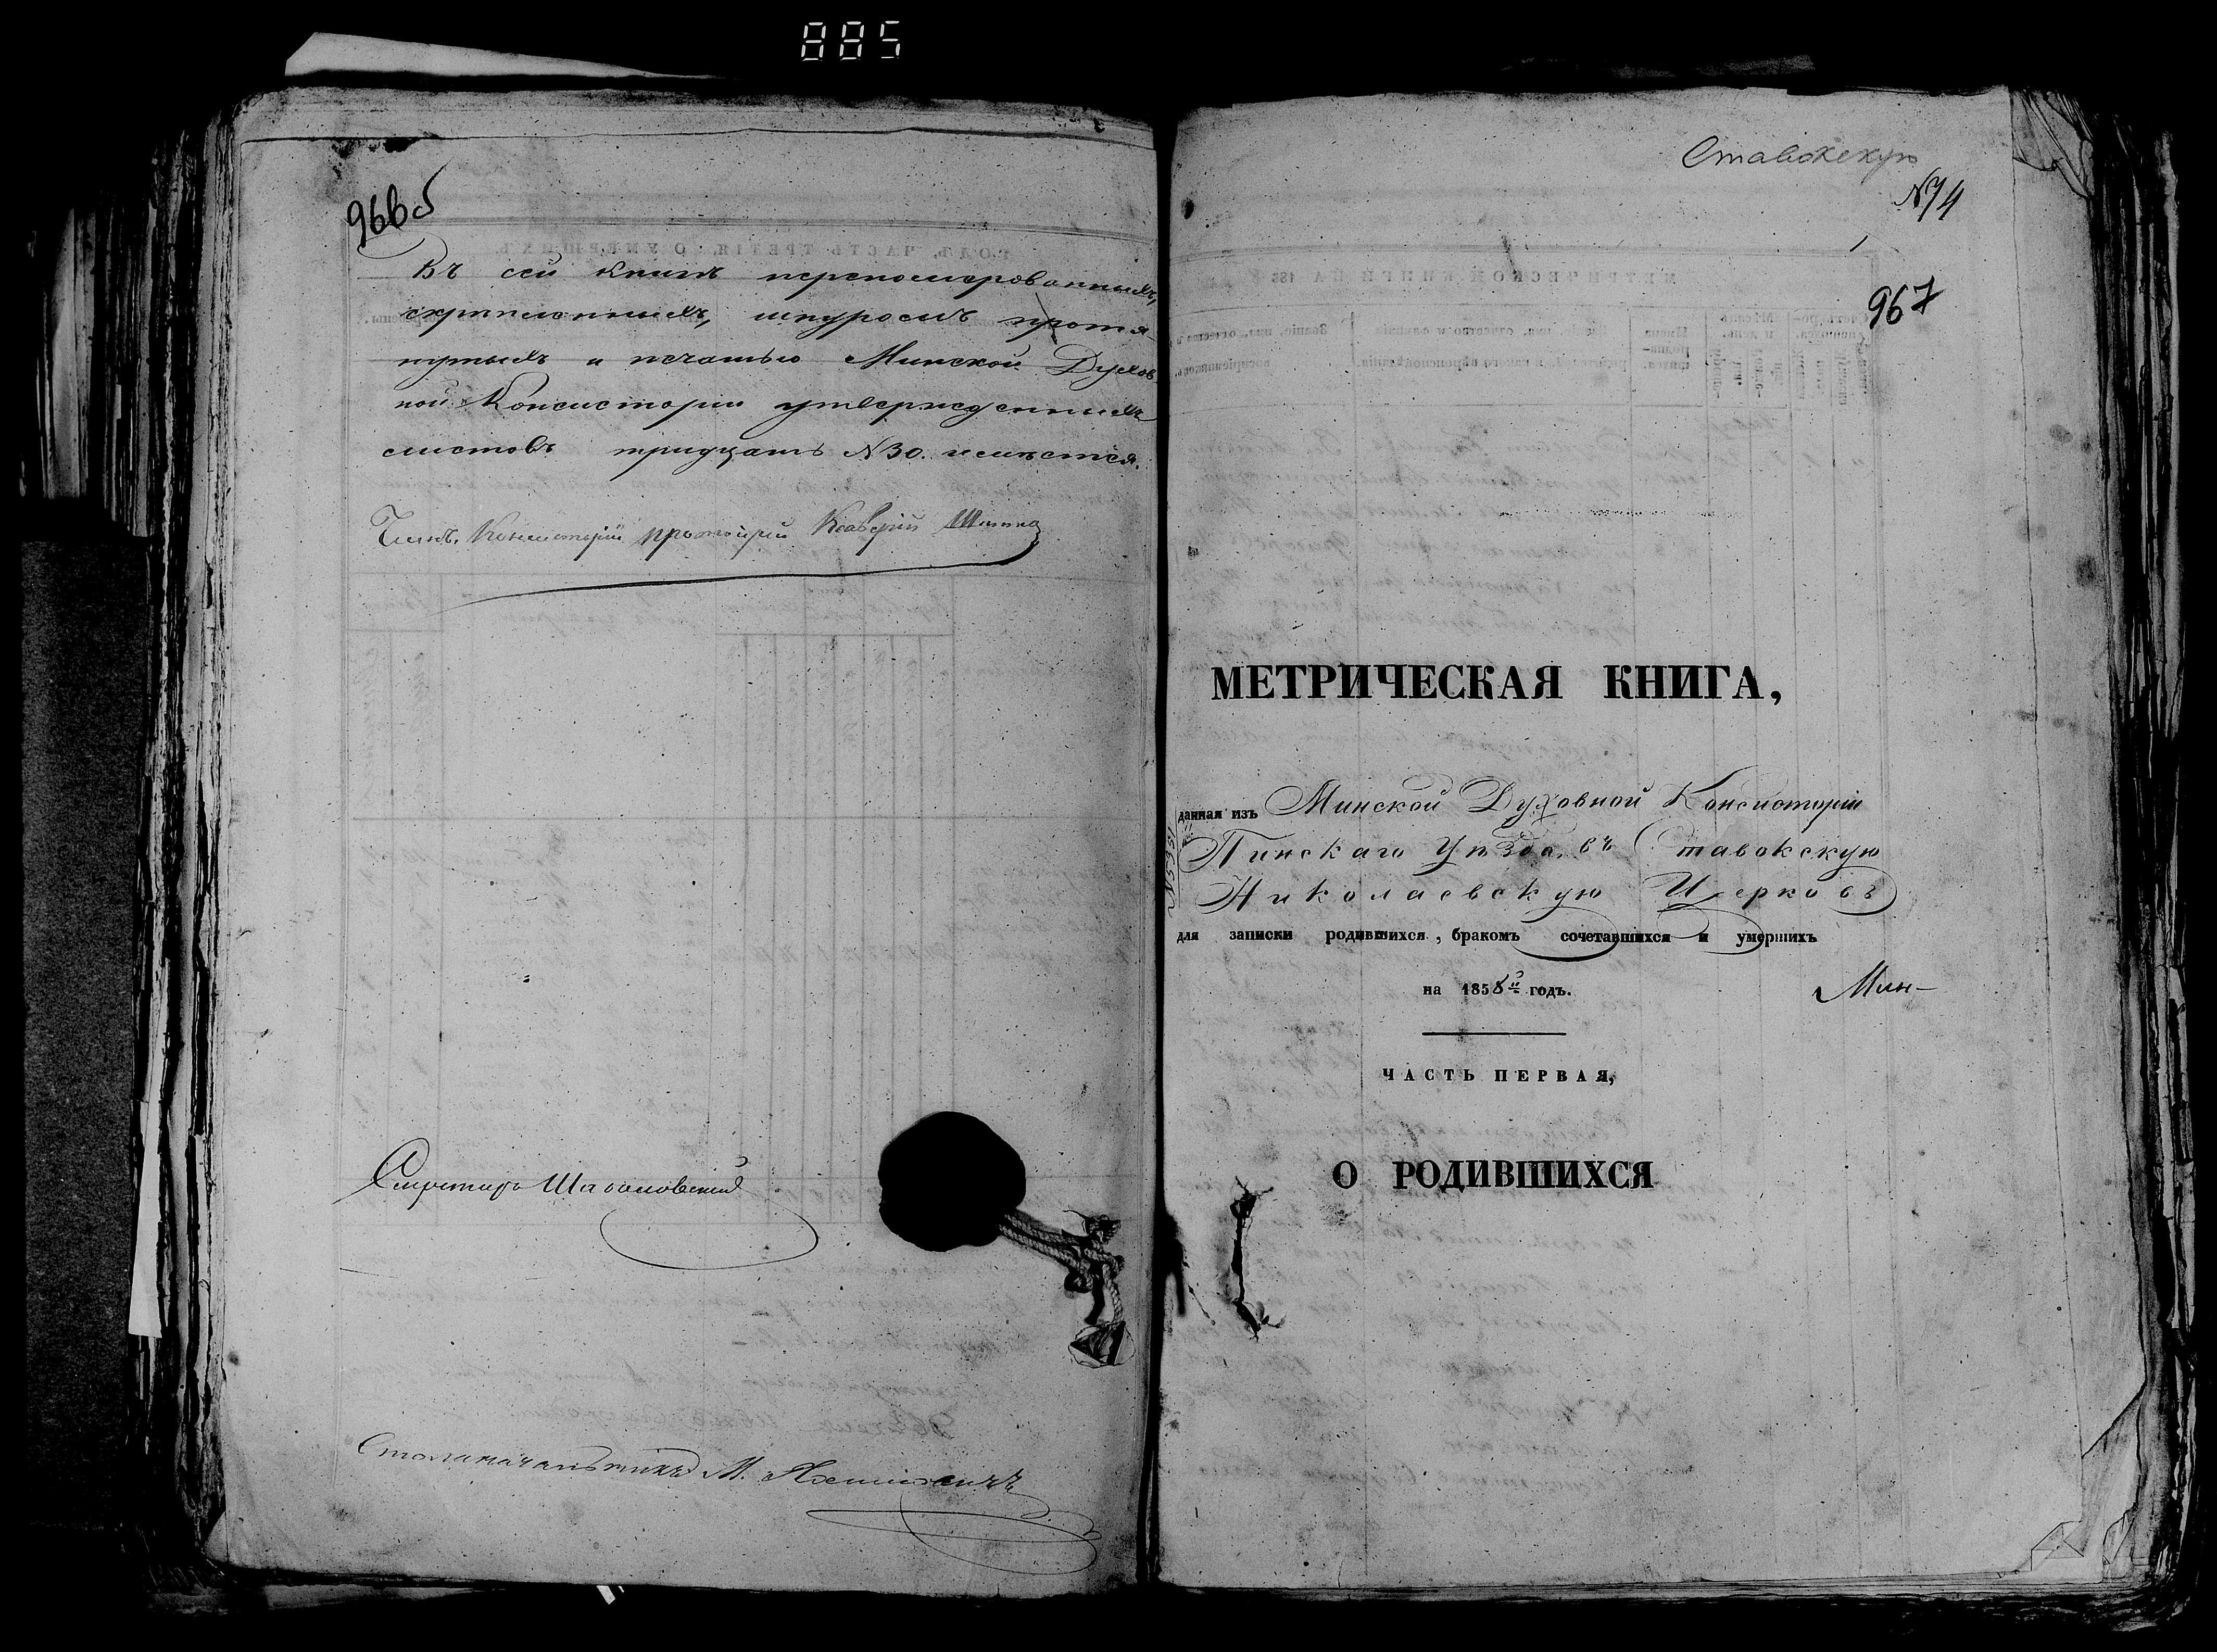 885
966б
Въ сей книгѣ перепомерованныхъ,
скрѣпленныхъ, шнуромъ протя-
нутыхъ и печатью Минской Духов
ной Консисторіи утвержденныхъ
листовъ тридцать N30. имѣется.
Членъ Консисторіи протоіерей
Секретарь
Столоначальникъ М.
Ставокскую
N74
1
967
МЕТРИЧЕСКАЯ КНИГА,
данная изъ Минской Духовной Консисторіи
Пинскаго Уѣзда, въ Ставокскую
Николаевскую Церковь
для записки родившихся, бракомъ сочетавшихся и умершихъ
на 1858й годъ.
Мин-
ЧАСТЬ ПЕРВАЯ,
О РОДИВШИХСЯ